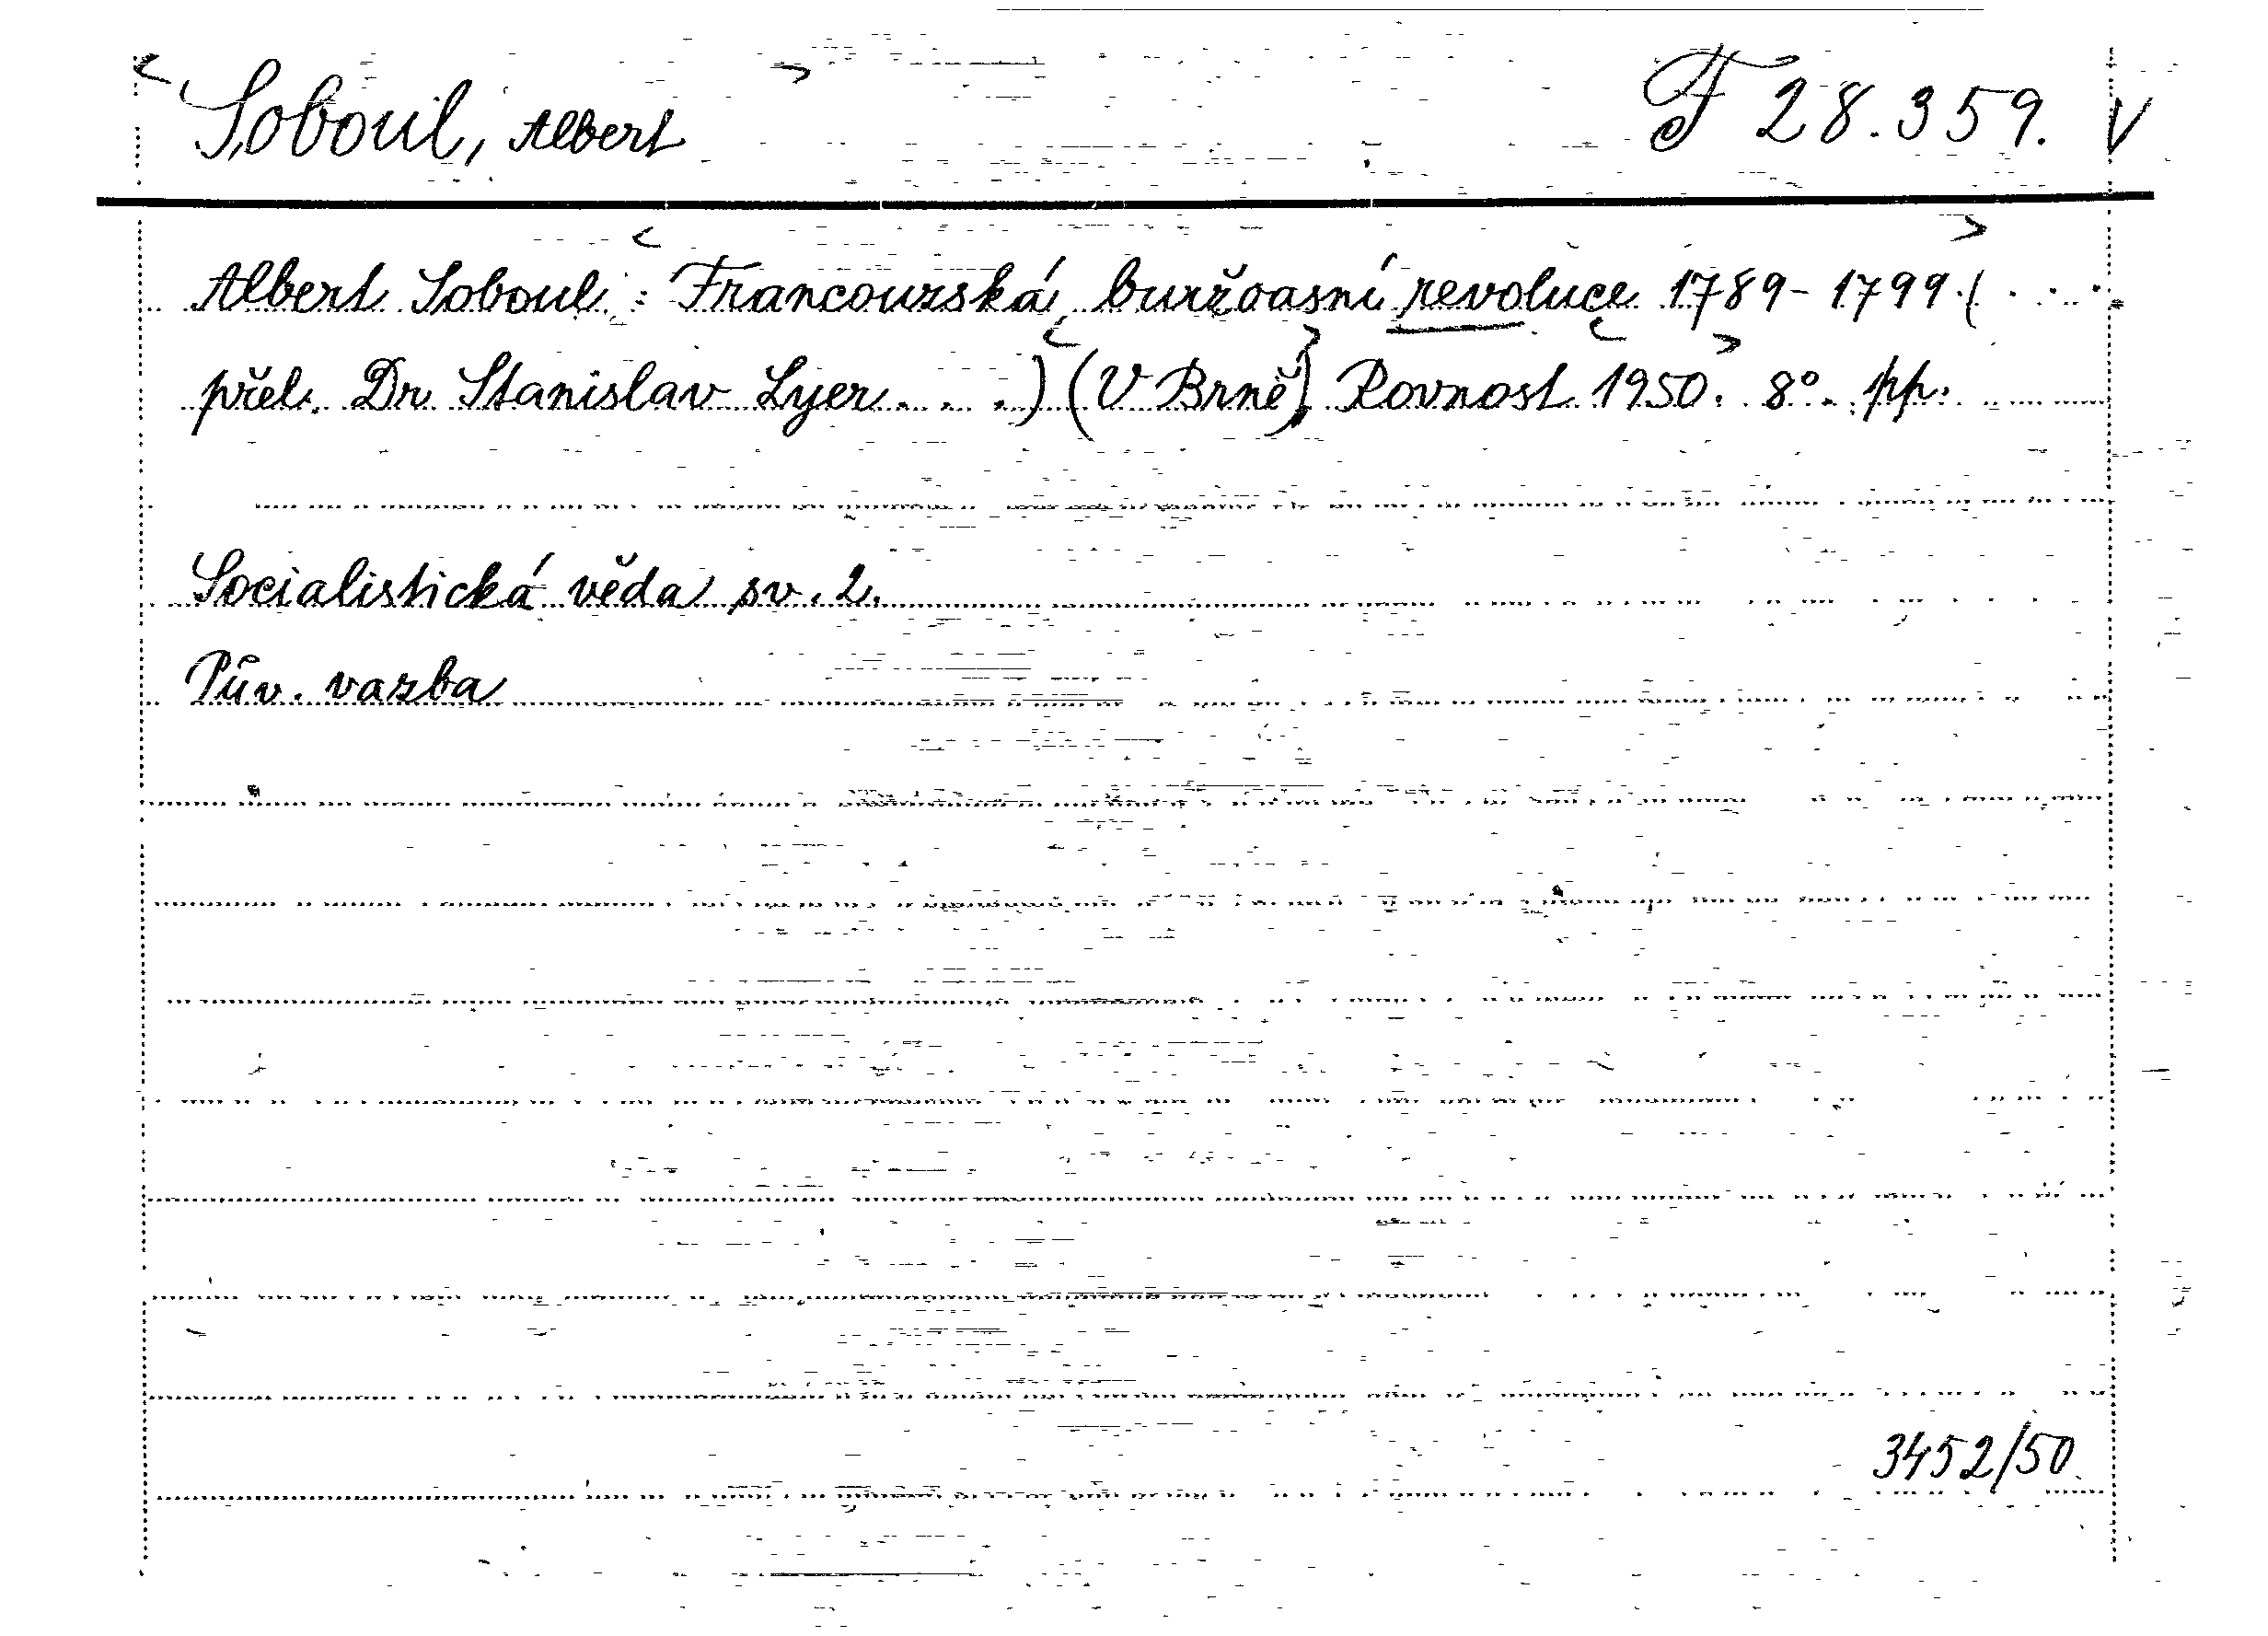 Soboul, Albert F 28.359. V
Albert Soboul: Francouzská buržoasní revoluce 1789-1799 (...
přel. Dr Stanislav Lyer...) (V Brně) Rovnost 1950. 8°. pp.
Socialistická věda sv. 2.
Pův. vazba
3452/50